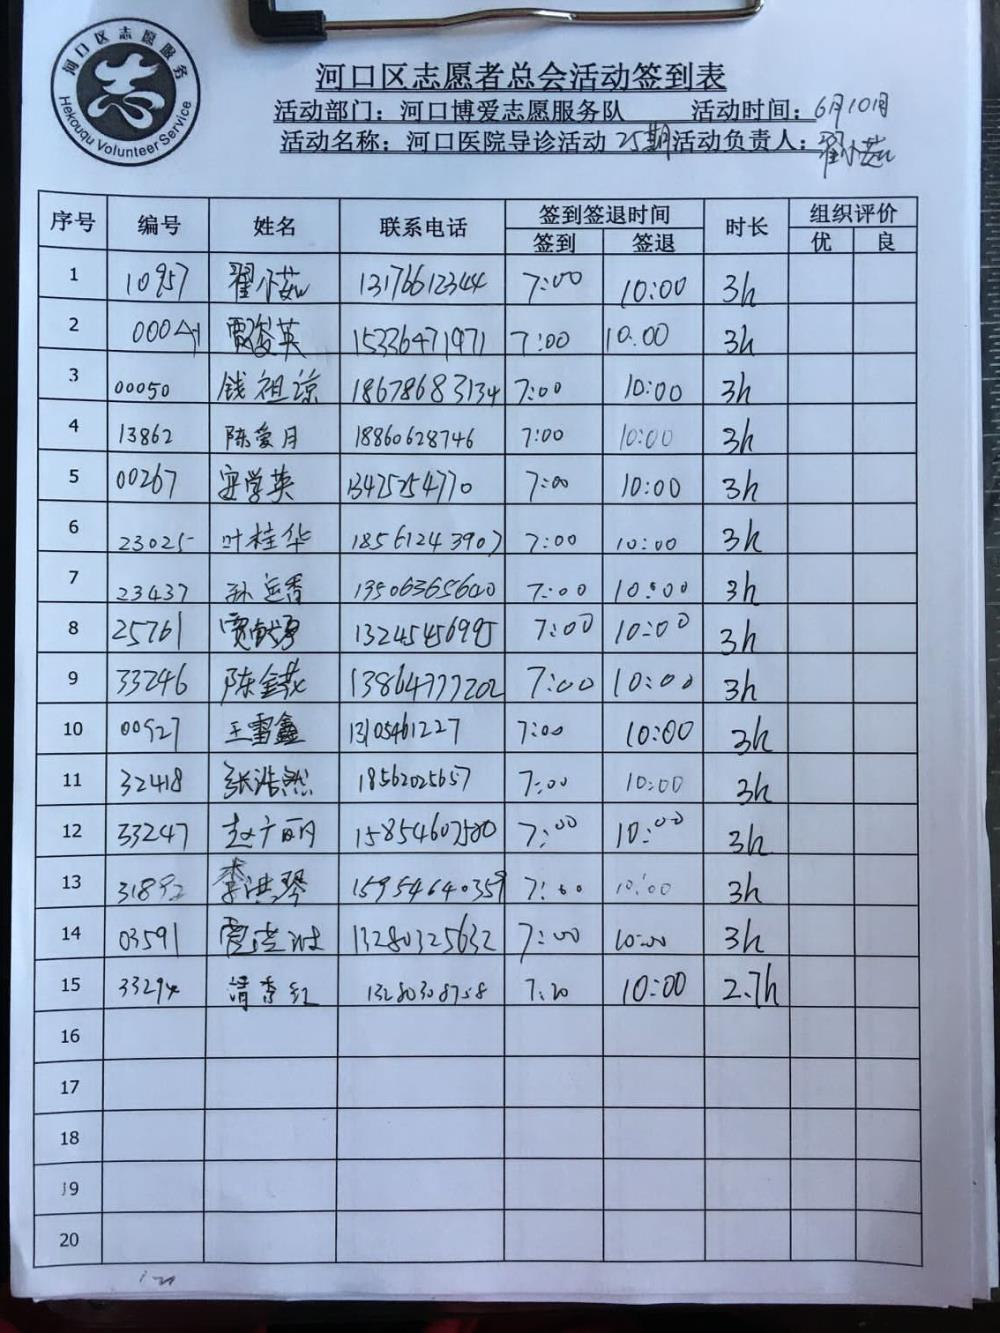 河口区志愿服务
志
Hekouqu Volunteer Service
河口区志愿者总会活动签到表
活动部门：河口博爱志愿服务队 活动时间：6月10日
活动名称：河口医院导诊活动 25期 活动负责人：翟小茹
序号 编号 姓名 联系电话 签到签退时间 时长 组织评价
签到 签退 优 良
1 10957 翟小茹 13176612344 7:00 10:00 3h
2 15336471971 7:00 10.00 3h
3 00050 钱祖谅 18678683134 7:00 10:00 3h
4 13862 陈爱月 18860628746 7:00 10:00 3h
5 00267 学英 13475254770 7:00 10:00 3h
6 23025 叶桂华 18561243907 7:00 10:00 3h
7 23437 孙运香 13506365640 7:00 10:00 3h
8 25761 13245456995 7:00 10:00 3h
9 33246 陈金英 13864777202 7:00 10:00 3h
10 00927 王雷鑫 13105461227 7:00 10:00 3h
11 32418 张浩然 18562025657 7:00 10:00 3h
12 33247 赵广丽 15854607580 7:00 10:00 3h
13 31892 李洪琴 15954640359 7:00 10:00 3h
14 03591 13280325632 7:00 10:00 3h
15 33294 13280308758 7:20 10:00 2.7h
16
17
18
19
20